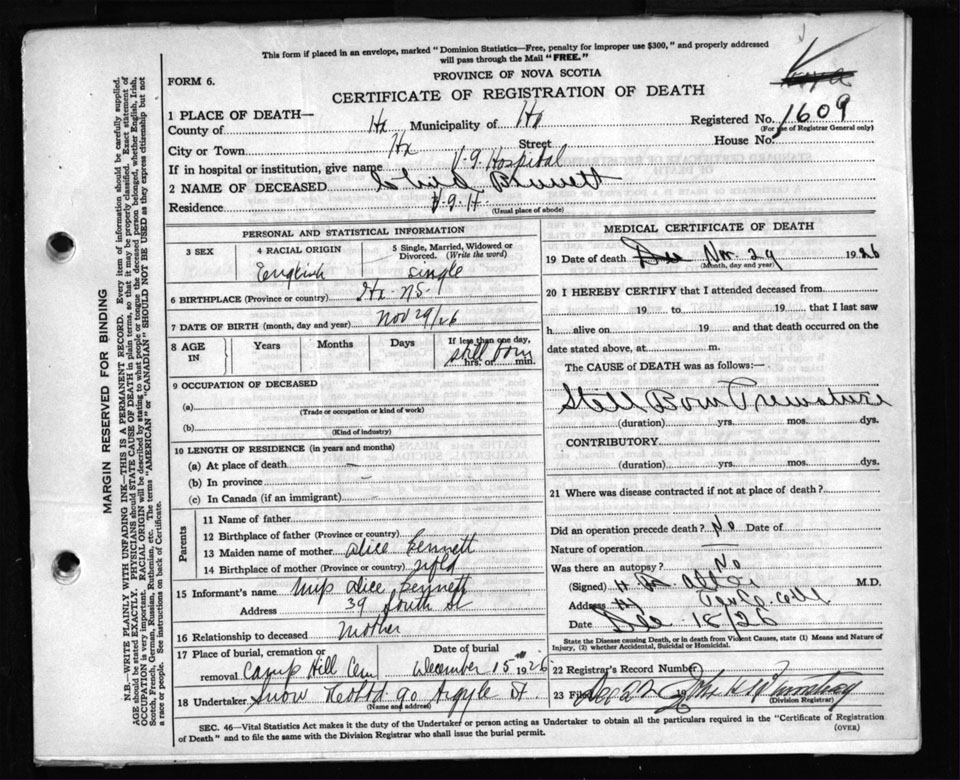 This form if placed in an envelope, marked "Dominion Statistics—Free, penalty for improper use $300," and properly addressed
will pass through the Mail "FREE."
FORM 6.
PROVINCE OF NOVA SCOTIA
CERTIFICATE OF REGISTRATION OF DEATH
1 PLACE OF DEATH—
County of Hx Municipality of Hx Registered No. 1609
(For use of Registrar General only)
City or Town Hx Street House No.
If in hospital or institution, give name V.G. Hospital
2 NAME OF DECEASED Child Bennett
Residence V.G.H.
(Usual place of abode)
MARGIN RESERVED FOR BINDING
N.B.—WRITE PLAINLY WITH UNFADING INK—THIS IS A PERMANENT RECORD. Every item of information should be carefully supplied.
AGE should be stated EXACTLY. PHYSICIANS should STATE CAUSE OF DEATH in plain terms, so that it may be properly classified. Exact statement of
OCCUPATION is very important. RACIAL ORIGIN will be described by stating to what people or tongue the deceased person belonged, whether English, Irish,
Scotch, French, German, Russian, Ruthenian, etc. The terms "AMERICAN" or "CANADIAN" SHOULD NOT BE USED as they express citizenship but not
a race or people. See instructions on back of Certificate.
PERSONAL AND STATISTICAL INFORMATION
3 SEX 4 RACIAL ORIGIN 5 Single, Married, Widowed or
Divorced. (Write the word)
English single
6 BIRTHPLACE (Province or country) Hx. N.S.
7 DATE OF BIRTH (month, day and year) Nov 29/26
8 AGE IN Years Months Days If less than one day,
still born
hrs. or min.
9 OCCUPATION OF DECEASED
(a)
(Trade or occupation or kind of work)
(b)
(Kind of industry)
10 LENGTH OF RESIDENCE (in years and months)
(a) At place of death —
(b) In province —
(c) In Canada (if an immigrant)
Parents
11 Name of father
12 Birthplace of father (Province or country)
13 Maiden name of mother Alice Bennett
14 Birthplace of mother (Province or country) Nfld
15 Informant's name Alice Bennett
Address 39 South St
16 Relationship to deceased Mother
17 Place of burial, cremation or Date of burial
removal Camp Hill Cem December 15th 1926
18 Undertaker Snow & Co Ltd 90 Argyle St.
(Name and address)
MEDICAL CERTIFICATE OF DEATH
19 Date of death Nov. 29 1926
(Month, day and year)
20 I HEREBY CERTIFY that I attended deceased from
19 to 19 , that I last saw
h alive on 19 and that death occurred on the
date stated above, at m.
The CAUSE OF DEATH was as follows:—
Still Born Premature
(duration) yrs. mos. dys.
CONTRIBUTORY
(duration) yrs. mos. dys.
21 Where was disease contracted if not at place of death?
Did an operation precede death? No Date of
Nature of operation —
Was there an autopsy? No
(Signed) M.D.
Address
Date Dec 18/26
State the Disease causing Death, or in death from Violent Causes, state (1) Means and Nature of
Injury, (2) whether Accidental, Suicidal or Homicidal.
22 Registrar's Record Number
23 Filed 19
(Division Registrar)
SEC. 46—Vital Statistics Act makes it the duty of the Undertaker or person acting as Undertaker to obtain all the particulars required in the "Certificate of Registration
of Death" and to file the same with the Division Registrar who shall issue the burial permit.
(OVER)